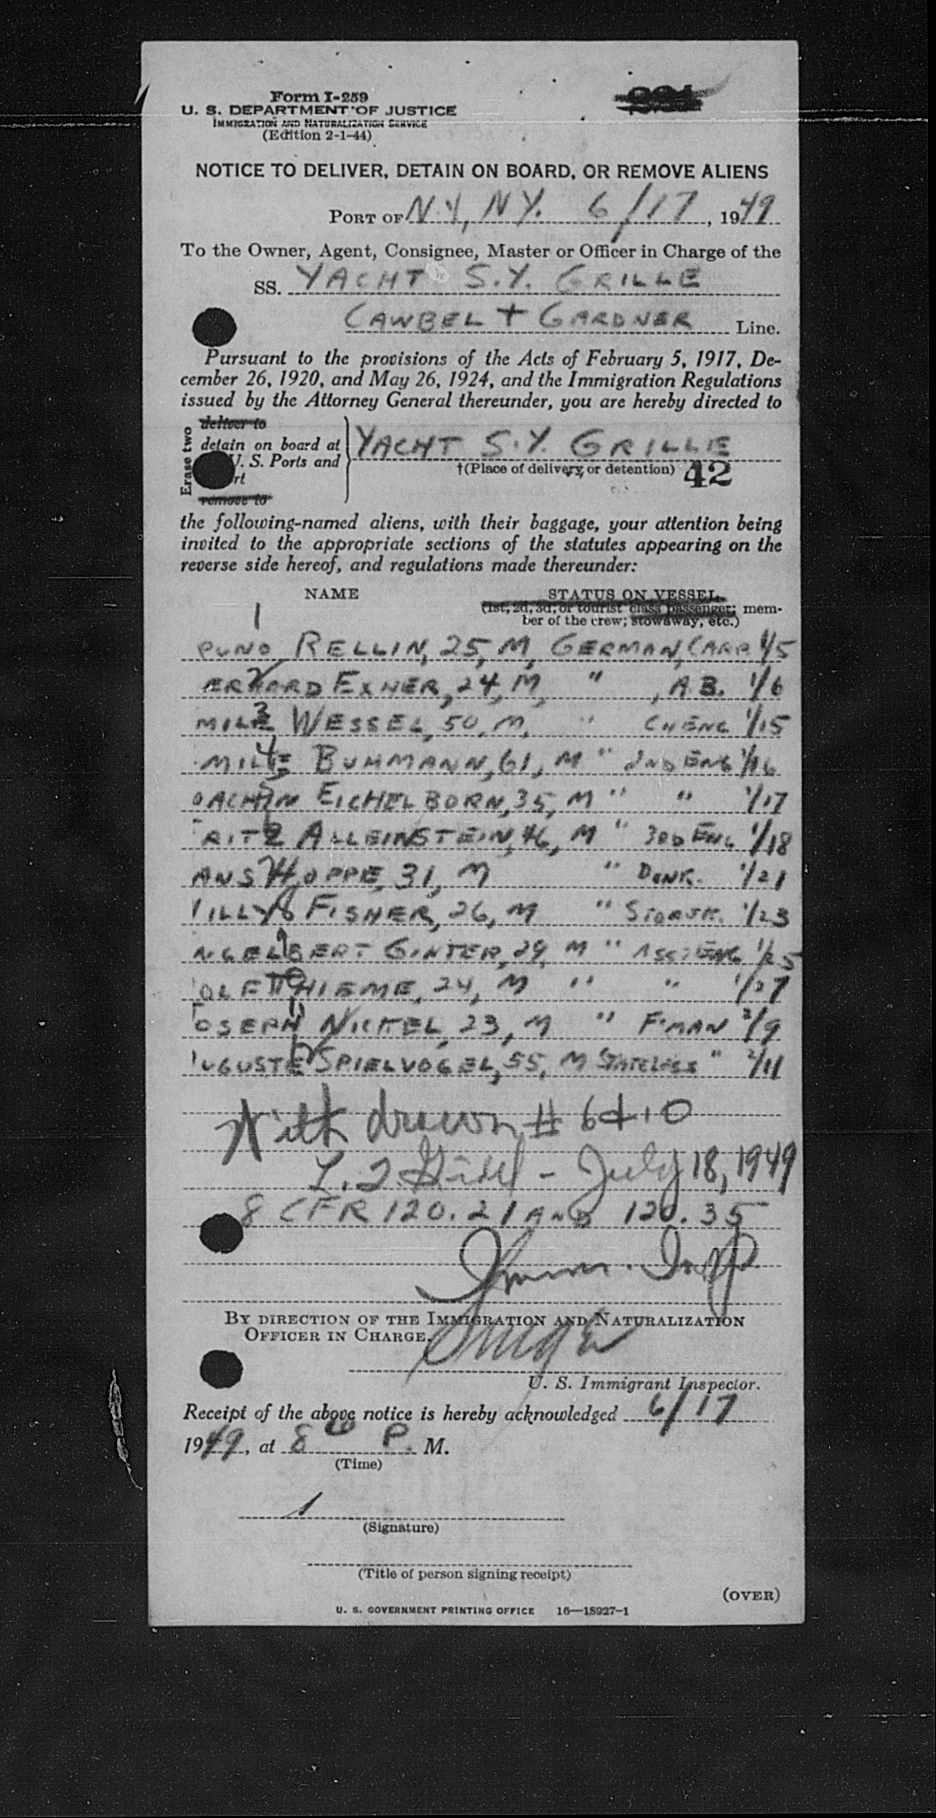 Form I-259
U. S. DEPARTMENT OF JUSTICE
IMMIGRATION AND NATURALIZATION SERVICE
(Edition 2-1-44)
NOTICE TO DELIVER, DETAIN ON BOARD, OR REMOVE ALIENS
PORT OF N.Y., N.Y. 6/17, 1949
To the Owner, Agent, Consignee, Master or Officer in Charge of the
SS. YACHT S.Y. GRILLE
CAWBEL + GARDNER Line.
Pursuant to the provisions of the Acts of February 5, 1917, De-
cember 26, 1920, and May 26, 1924, and the Immigration Regulations
issued by the Attorney General thereunder, you are hereby directed to
Erase two
deliver to
detain on board at
U. S. Ports and
remove to
YACHT S.Y. GRILLE
†(Place of delivery or detention) 42
the following-named aliens, with their baggage, your attention being
invited to the appropriate sections of the statutes appearing on the
reverse side hereof, and regulations made thereunder:
NAME
STATUS ON VESSEL
(1st, 2d, 3d, or tourist class passenger; mem-
ber of the crew; stowaway, etc.)
1
RELLIN, 25, M, GERMAN, CARP. 1/5
2 EXNER, 24, M, " , A.B. 1/6
3 WESSEL, 50, M, " CH ENG 1/15
4 BUHMANN, 61, M " 2ND ENG 1/16
EICHELBORN, 35, M " " 1/17
ALLEINSTEIN, 46, M " 3RD ENG 1/18
ANS HOPPE, 31, M " DONK. 1/21
ILLY 8 FISHER, 26, M " 1/23
9
NGELBERT GINTER, 29, M " ASST ENG 1/25
10 THIEME, 24, M " " 1/27
11
OSEPH NICKEL, 23, M " F'MAN 2/9
12
UGUSTE SPIELVOGEL, 55, M STATELESS " 2/11
With drawn # 6 & 10
July 18, 1949
8 CFR 120.21 AND 120.35
Immn. Insp
BY DIRECTION OF THE IMMIGRATION AND NATURALIZATION
OFFICER IN CHARGE.
U. S. Immigrant Inspector.
Receipt of the above notice is hereby acknowledged 6/17
1949, at 8 00 P. M.
(Time)
(Signature)
(Title of person signing receipt)
(OVER)
U. S. GOVERNMENT PRINTING OFFICE 16—18927-1